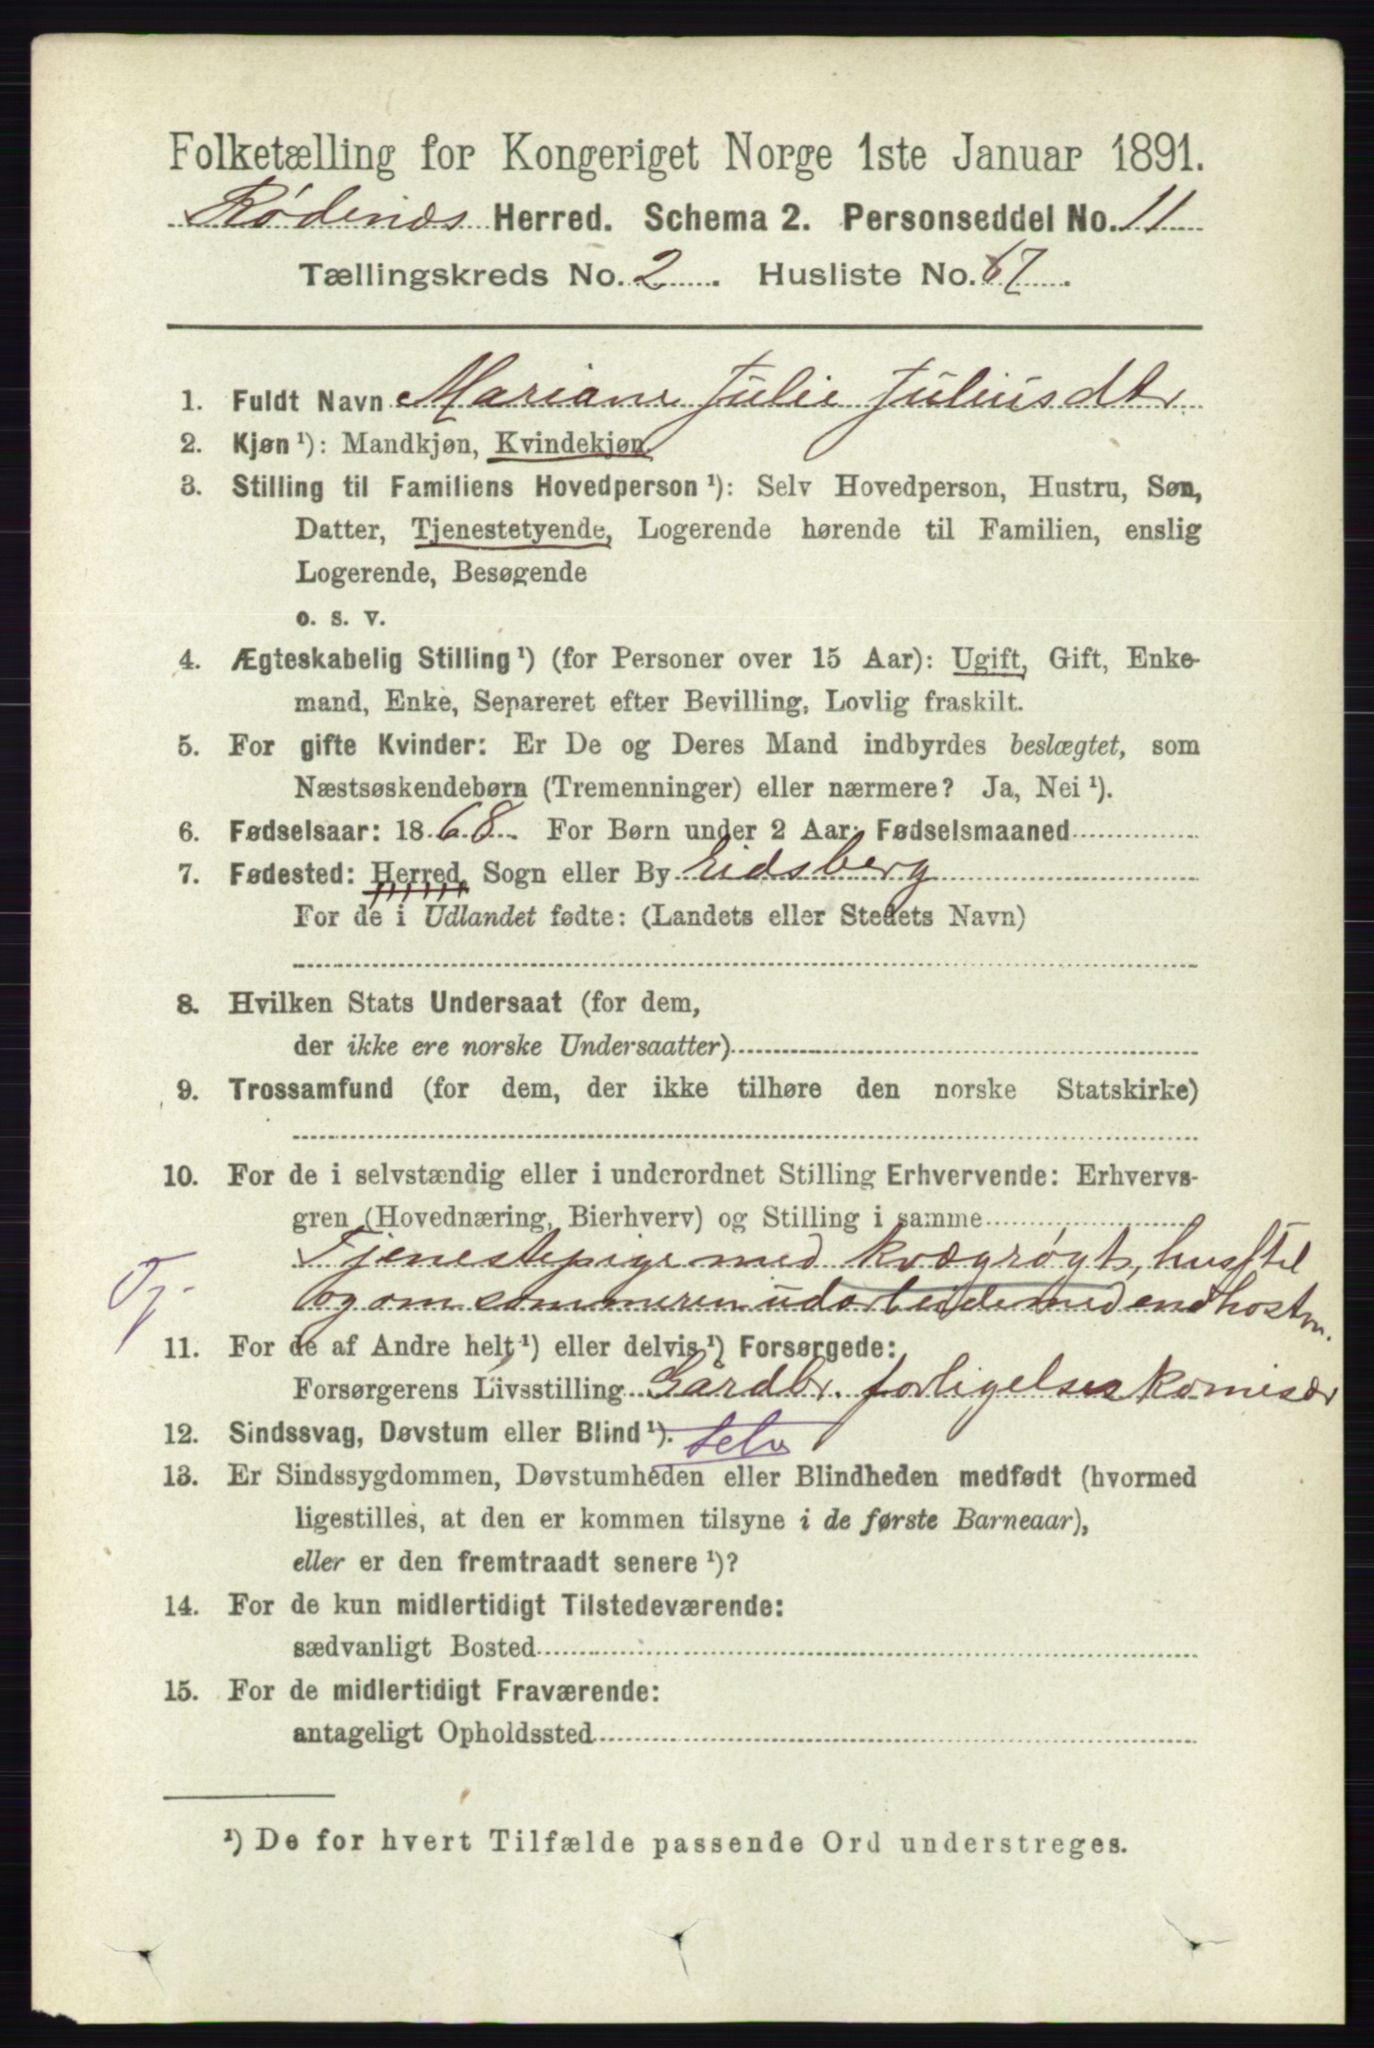 Folketælling for Kongeriget Norge 1ste Januar 1891.
Rødenæs Herred. Schema 2. Personseddel No. 11
Tællingskreds No. 2. Husliste No. 67.
1. Fuldt Navn Mariane Julie Juliusdtr
2. Kjøn ¹): Mandkjøn, Kvindekjøn.
3. Stilling til Familiens Hovedperson ¹): Selv Hovedperson, Hustru, Søn,
Datter, Tjenestetyende, Logerende hørende til Familien, enslig
Logerende, Besøgende
o. s. v.
4. Ægteskabelig Stilling ¹) (for Personer over 15 Aar): Ugift, Gift, Enke-
mand, Enke, Separeret efter Bevilling, Lovlig fraskilt.
5. For gifte Kvinder: Er De og Deres Mand indbyrdes beslægtet, som
Næstsøskendebørn (Tremenninger) eller nærmere? Ja, Nei ¹).
6. Fødselsaar: 1868. For Børn under 2 Aar: Fødselsmaaned
7. Fødested: Herred, Sogn eller By Eidsberg
For de i Udlandet fødte: (Landets eller Stedets Navn)
8. Hvilken Stats Undersaat (for dem,
der ikke ere norske Undersaatter)
9. Trossamfund (for dem, der ikke tilhøre den norske Statskirke)
10. For de i selvstændig eller i underordnet Stilling Erhvervende: Erhvervs-
gren (Hovednæring, Bierhverv) og Stilling i samme
Tjenestepige med kvægrøgt, husstel
Tj. og om sommeren udarbeide med
11. For de af Andre helt ¹) eller delvis ¹) Forsørgede:
Forsørgerens Livsstilling Gårdbr. forligelseskomisær
12. Sindssvag, Døvstum eller Blind ¹). selv
13. Er Sindssygdommen, Døvstumheden eller Blindheden medfødt (hvormed
ligestilles, at den er kommen tilsyne i de første Barneaar),
eller er den fremtraadt senere ¹)?
14. For de kun midlertidigt Tilstedeværende:
sædvanligt Bosted
15. For de midlertidigt Fraværende:
antageligt Opholdssted
¹) De for hvert Tilfælde passende Ord understreges.